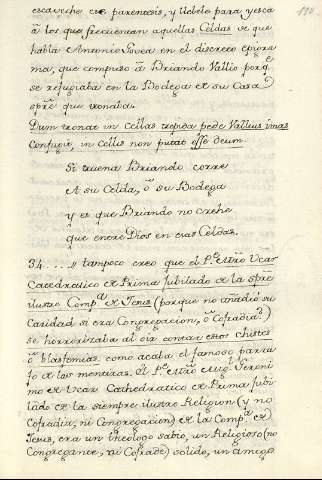 escaveche ese parentesis, y llebelo para yesca
à los que frecuentan aquellas Celdas de que
habla Antonio Govea en el discreto epigra
ma, que compuso à Briando Vallio porq.e
se refugiaba en la Bodega de su Casa
spre. que tronaba.
Dum tonat in cellas trepida pede Vallius imas
Confugit, in cellis non putat esse deum.
Si truena Briando corre
A su Celda, ò su Bodega
y es que Briando no crehe
q.e entre Dios en esas Celdas.
34. .... Y tampoco creo que el P.e Mrô Vcar
Catedratico de Prima Jubilado de la spre
ilustre Comp.a de Jesus (porque no añadiò su
Caridad si era Congregacion, ò Cofradia?)
se horrorizaba al oîa contar essas chistes
ò blasfemias, como acaba el famoso parra
fo de las mentiras. El P.e Mrô Mig.l Geroni
mo de Vcar Cathedratico de Prima Jubi
lado de la siempre ilustre Religion (y no
Cofradia, ni Congregacion) de la Comp.a de
Jesus, era un theologo sabio, un Religioso (no
Congregante, ni Cofrade) solido, un amigo